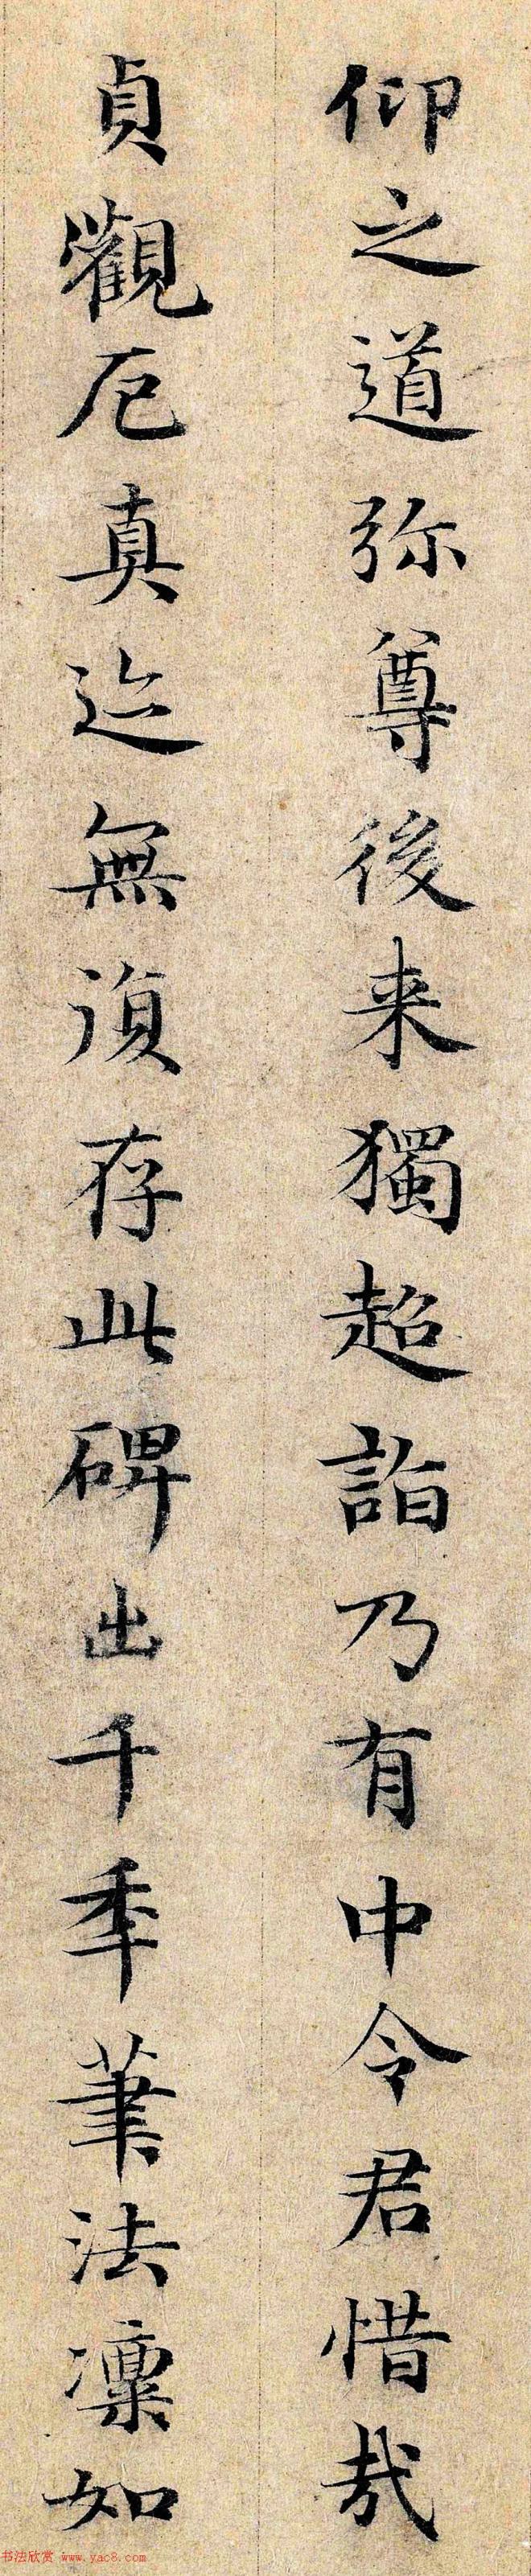 仰之道弥尊後来獨超詣乃有中令君惜哉
貞觀厄真迩無湏存此碑出千季筆法凛如
书法欣赏 www.yac8.com